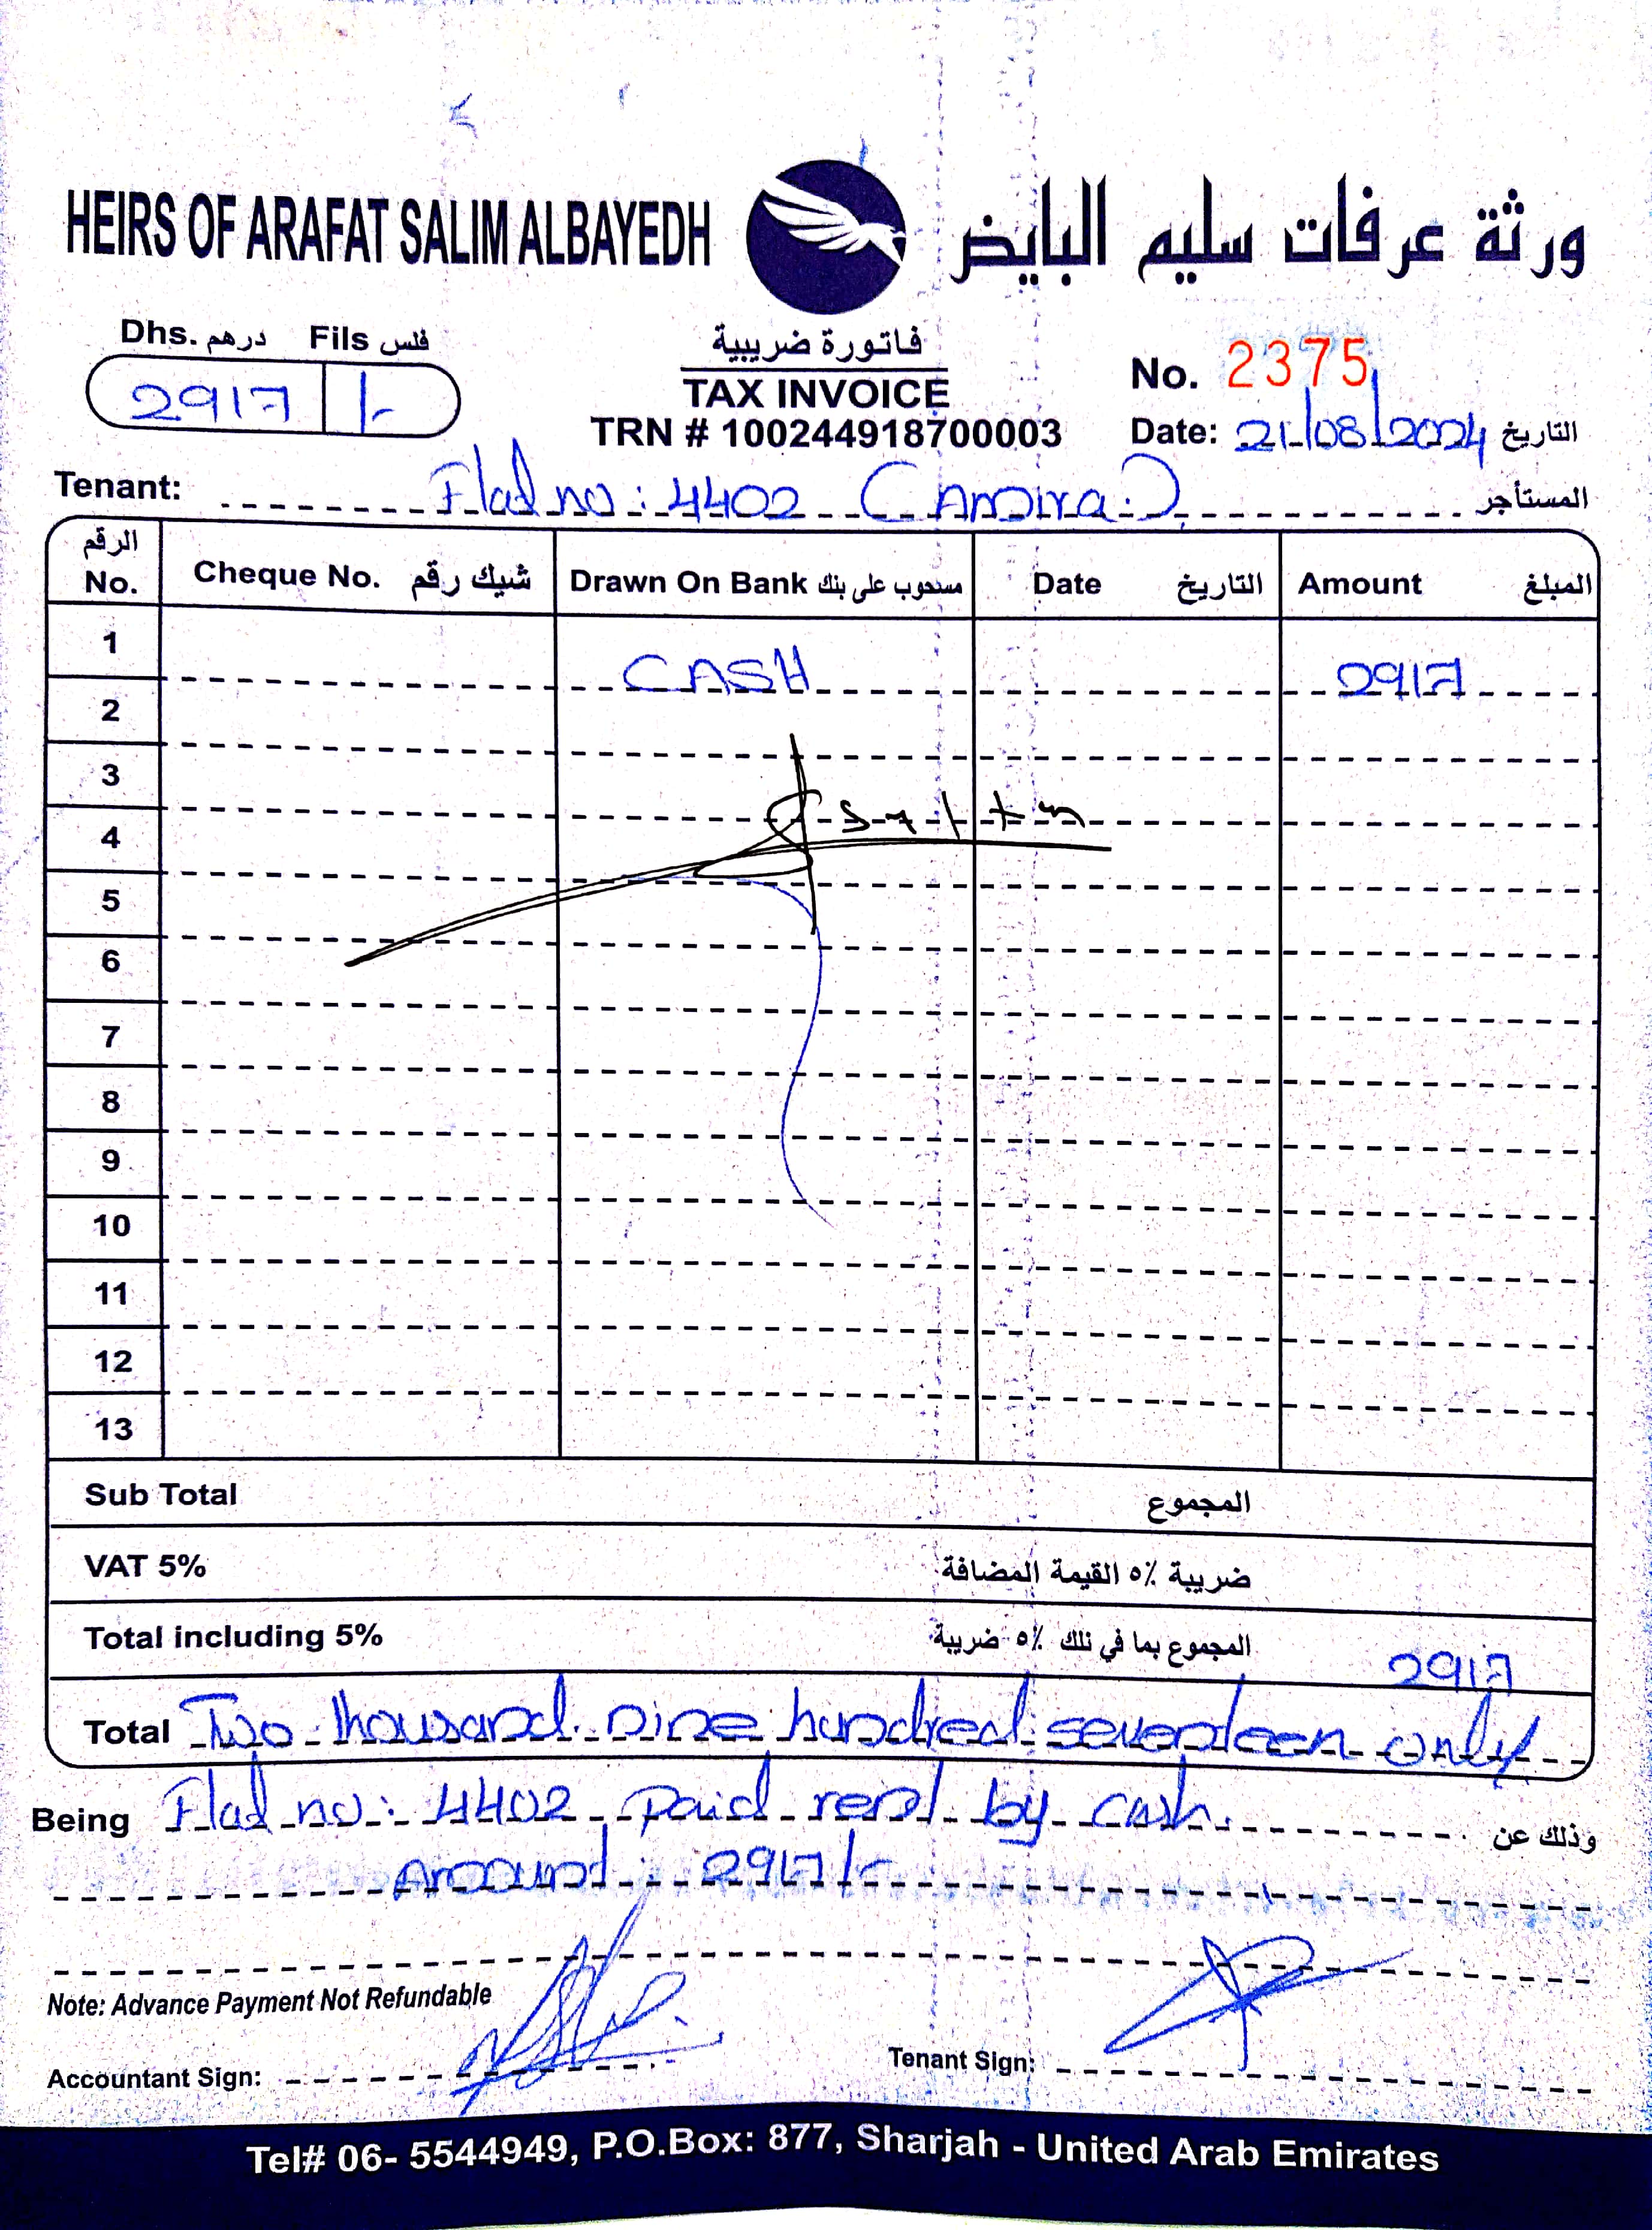 HEIRS OF ARAFAT SALIM ALBAYEDH ورثة عرفات سليم البايض
Dhs. درهم Fils فلس
2917 /-
فاتورة ضريبية
TAX INVOICE
TRN # 100244918700003
No. 2375
Date: 21/08/2024 التاريخ
Tenant: Flat no: 4402 (Amira) المستأجر
الرقم No. Cheque No. شيك رقم Drawn On Bank مسحوب على بنك Date التاريخ Amount المبلغ
1 CASH 2917
2
3
4
5
6
7
8
9
10
11
12
13
Sub Total المجموع
VAT 5% ضريبة ٥٪ القيمة المضافة
Total including 5% المجموع بما في ذلك ٥٪ ضريبة 2917
Total Two thousand nine hundred seventeen only
Being Flat no: 4402 paid rent by cash. وذلك عن
Amount: 2917/-
Note: Advance Payment Not Refundable
Accountant Sign: Tenant Sign:
Tel# 06- 5544949, P.O.Box: 877, Sharjah - United Arab Emirates